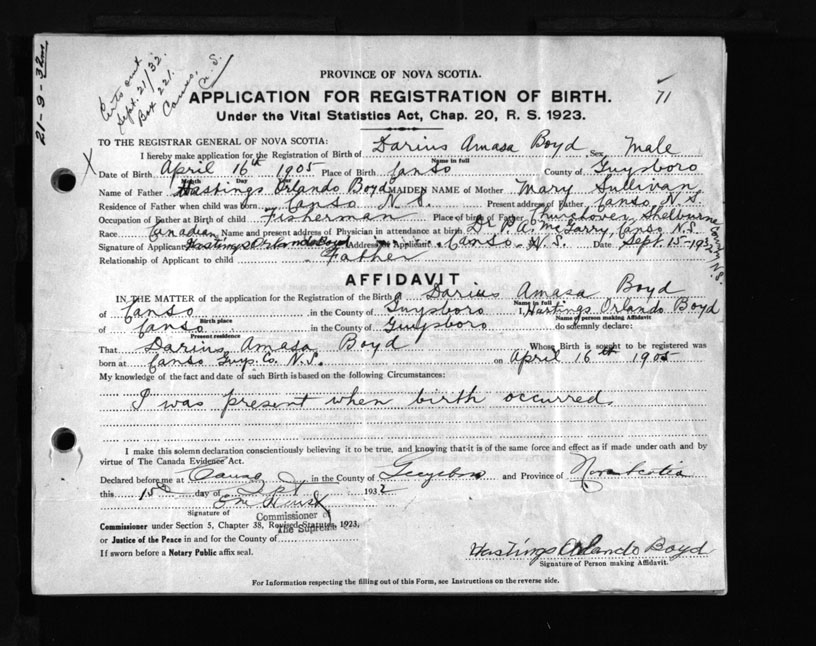 21-9-32
Sept. 21/32.
Box 221.
Canso, N. S.
PROVINCE OF NOVA SCOTIA.
APPLICATION FOR REGISTRATION OF BIRTH. 71
Under the Vital Statistics Act, Chap. 20, R. S. 1923.
TO THE REGISTRAR GENERAL OF NOVA SCOTIA:
X
I hereby make application for the Registration of Birth of Darius Amasa Boyd Sex Male
Name in full
Date of Birth April 16th 1905 Place of Birth Canso County of Guysboro
Name of Father Hastings Orlando Boyd MAIDEN NAME of Mother Mary Sullivan
Residence of Father when child was born Canso N. S. Present address of Father Canso N. S.
Occupation of Father at Birth of child Fisherman Place of birth of Father Churchover, Shelburne County, N. S.
Race Canadian Name and present address of Physician in attendance at birth Dr. P. A. McGarry, Canso N. S.
Signature of Applicant Hastings Orlando Boyd Address of Applicant Canso, N. S. Date Sept. 15-1932
Relationship of Applicant to child Father
AFFIDAVIT
IN THE MATTER of the application for the Registration of the Birth of Darius Amasa Boyd
Name in full
of Canso in the County of Guysboro I, Hastings Orlando Boyd
Birth place Name of person making Affidavit
of Canso in the County of Guysboro do solemnly declare:
Present residence
That Darius Amasa Boyd Whose Birth is sought to be registered was
born at Canso Guys. Co. N. S. on April 16th 1905
My knowledge of the fact and date of such Birth is based on the following Circumstances:
I was present when birth occurred.
I make this solemn declaration conscientiously believing it to be true, and knowing that it is of the same force and effect as if made under oath and by
virtue of The Canada Evidence Act.
Declared before me at Canso in the County of Guysboro and Province of Nova Scotia
this 15th day of Sept 1932
Signature of
Commissioner of
The Supreme
Commissioner under Section 5, Chapter 38, Revised Statutes, 1923,
or Justice of the Peace in and for the County of
If sworn before a Notary Public affix seal.
Hastings Orlando Boyd
Signature of Person making Affidavit.
For Information respecting the filling out of this Form, see Instructions on the reverse side.